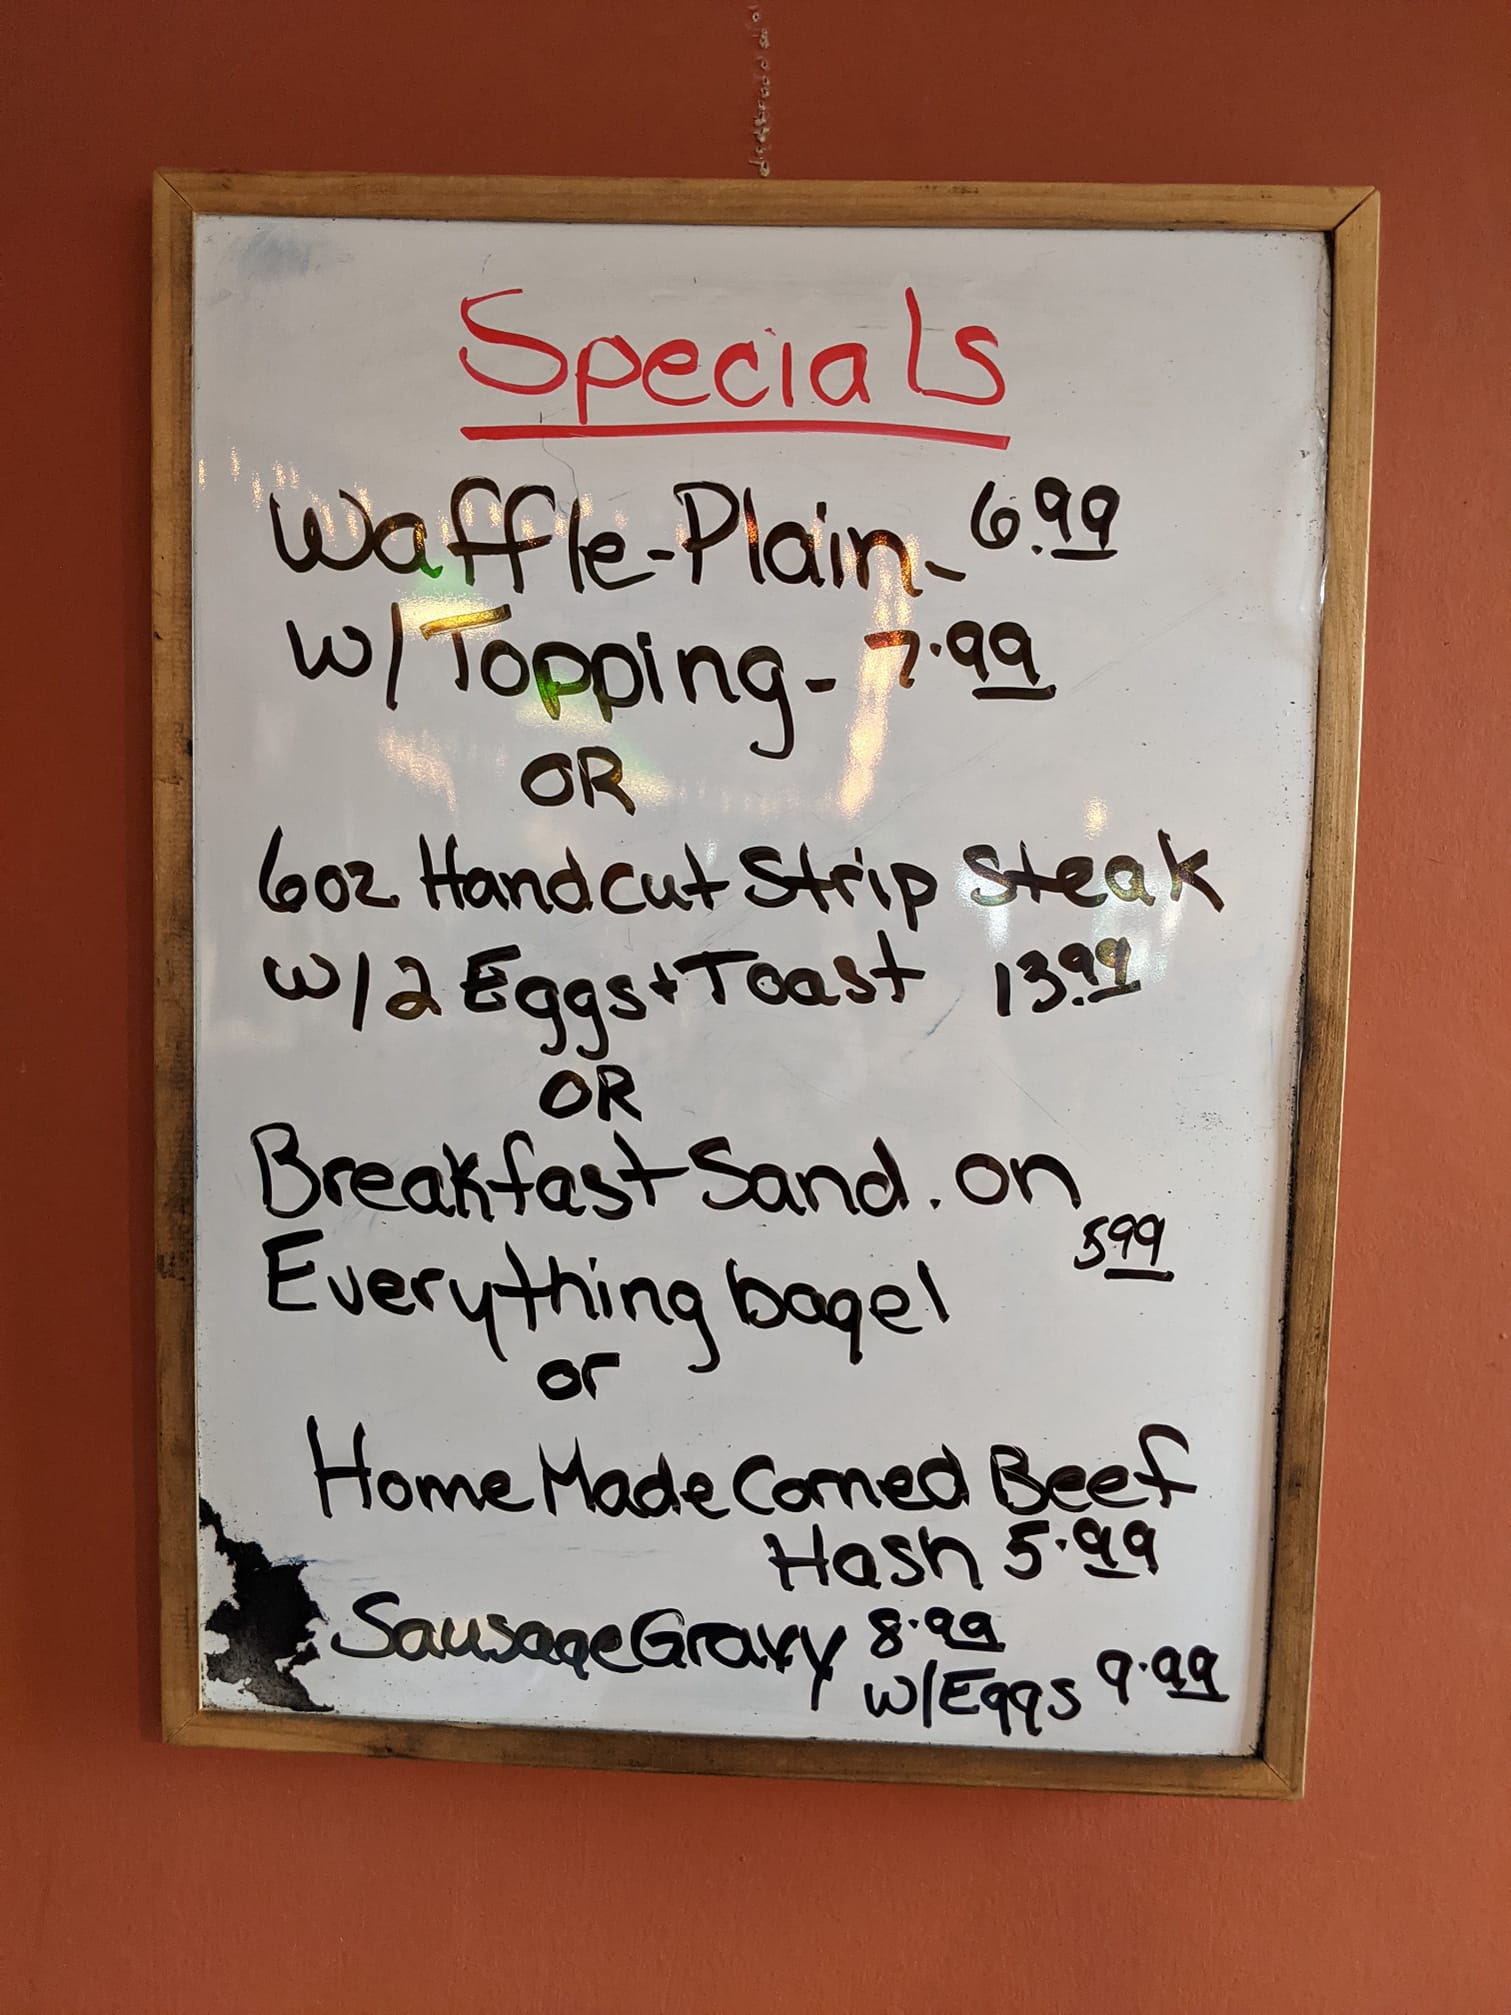 Specials
Waffle-Plain- 6.99
w/Topping- 7.99
OR
6oz Handcut Strip Steak
w/2 Eggs+Toast 13.99
OR
Breakfast Sand. on
Everything bagel 5.99
or
Home Made Corned Beef
Hash 5.99
Sausage Gravy 8.99
w/Eggs 9.99